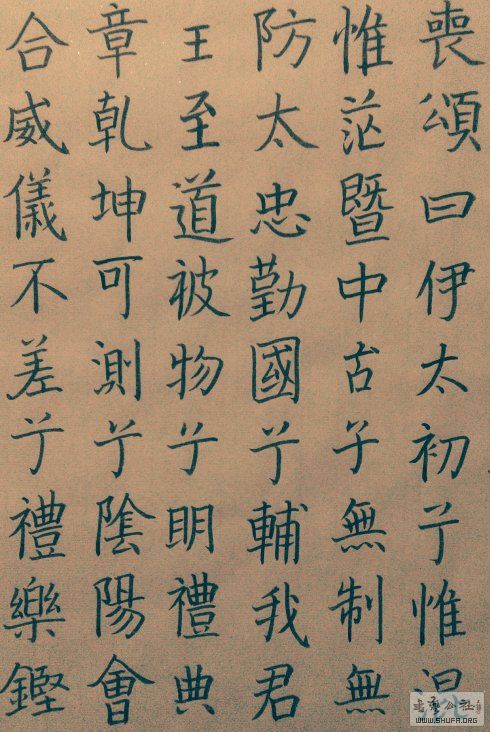 喪頌曰伊太初兮惟混
惟茫暨中古子無制無
防太忠勤國兮輔我君
王至道被物兮明禮典
章乾坤可測兮陰陽會
合威儀不差兮禮樂鏗
WWW.SHUFA.ORG